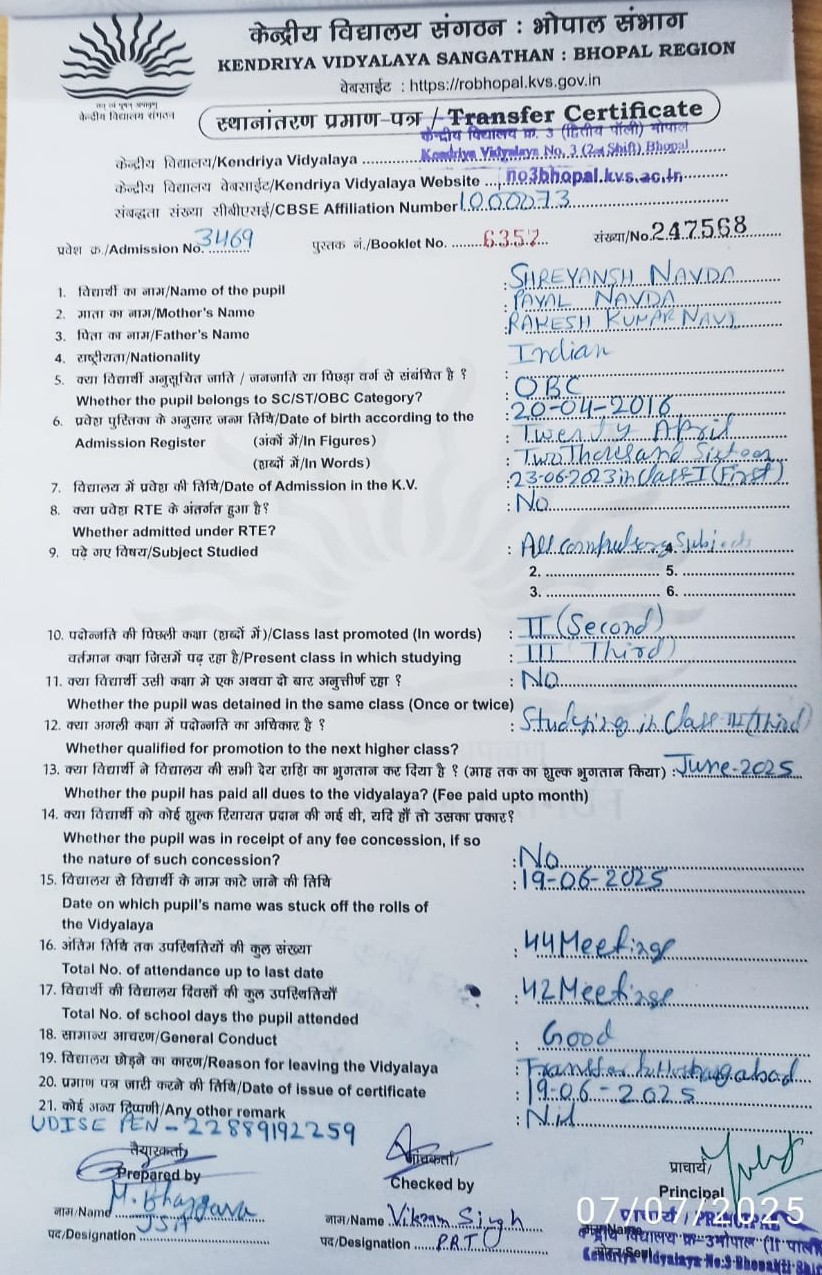 केन्द्रीय विद्यालय संगठन : भोपाल संभाग
KENDRIYA VIDYALAYA SANGATHAN : BHOPAL REGION
वेबसाईट : https://robhopal.kvs.gov.in
केन्द्रीय विद्यालय संगठन
स्थानांतरण प्रमाण-पत्र / Transfer Certificate
केन्द्रीय विद्यालय क्र. 3 (द्वितीय पॉली) भोपाल
केन्द्रीय विद्यालय/Kendriya Vidyalaya Kendriya Vidyalaya No. 3 (2nd Shift) Bhopal
केन्द्रीय विद्यालय वेबसाईट/Kendriya Vidyalaya Website no3bhopal.kvs.ac.in
संबद्धता संख्या सीबीएसई/CBSE Affiliation Number 1000073
प्रवेश क्र./Admission No. 3469 पुस्तक नं./Booklet No. 6357 संख्या/No. 247568
1. विद्यार्थी का नाम/Name of the pupil : SHREYANSH NAVDA
2. माता का नाम/Mother's Name : PAYAL NAVDA
3. पिता का नाम/Father's Name : RAKESH KUMAR
4. राष्ट्रीयता/Nationality : Indian
5. क्या विद्यार्थी अनुसूचित जाति / जनजाति या पिछड़ा वर्ग से संबंधित है ?
Whether the pupil belongs to SC/ST/OBC Category? : OBC
6. प्रवेश पुस्तिका के अनुसार जन्म तिथि/Date of birth according to the : 20-04-2016
Admission Register (अंकों में/In Figures) : Twenty April
(शब्दों में/In Words) : Two Thousand Sixteen
7. विद्यालय में प्रवेश की तिथि/Date of Admission in the K.V. : 23-06-2023 in Class I (First)
8. क्या प्रवेश RTE के अंतर्गत हुआ है? : No
Whether admitted under RTE?
9. पढ़े गए विषय/Subject Studied : All compulsory Subjects 4.
2. 5.
3. 6.
10. पदोन्नति की पिछली कक्षा (शब्दों में)/Class last promoted (In words) : II (Second)
वर्तमान कक्षा जिसमें पढ़ रहा है/Present class in which studying : III Third)
11. क्या विद्यार्थी उसी कक्षा मे एक अथवा दो बार अनुत्तीर्ण रहा ? : No
Whether the pupil was detained in the same class (Once or twice)
12. क्या अगली कक्षा में पदोन्नति का अधिकार है ? : Studying in Class III (Third)
Whether qualified for promotion to the next higher class?
13. क्या विद्यार्थी ने विद्यालय की सभी देय राशि का भुगतान कर दिया है ? (माह तक का शुल्क भुगतान किया) : June-2025
Whether the pupil has paid all dues to the vidyalaya? (Fee paid upto month)
14. क्या विद्यार्थी को कोई शुल्क रियायत प्रदान की गई थी, यदि हाँ तो उसका प्रकार?
Whether the pupil was in receipt of any fee concession, if so
the nature of such concession? : No
15. विद्यालय से विद्यार्थी के नाम काटे जाने की तिथि : 19-06-2025
Date on which pupil's name was stuck off the rolls of
the Vidyalaya
16. अंतिम तिथि तक उपस्थितियों की कुल संख्या : 44 Meetings
Total No. of attendance up to last date
17. विद्यार्थी की विद्यालय दिवसों की कुल उपस्थितियाँ : 42 Meetings
Total No. of school days the pupil attended
18. सामान्य आचरण/General Conduct : Good
19. विद्यालय छोड़ने का कारण/Reason for leaving the Vidyalaya : Transfer to Hoshangabad
20. प्रमाण पत्र जारी करने की तिथि/Date of issue of certificate : 19-06-2025
21. कोई अन्य टिप्पणी/Any other remark : Nil
UDISE PEN - 22889192259
तैयारकर्ता/ जांचकर्ता/ प्राचार्य/
Prepared by Checked by Principal
नाम/Name M. Bhargava नाम/Name Vikram Singh
पद/Designation JSA पद/Designation PRT
07/07/2025
प्राचार्य / PRINCIPAL
केन्द्रीय विद्यालय क्र-3 भोपाल (II पाली
Kendriya Vidyalaya No.3 Bhopal